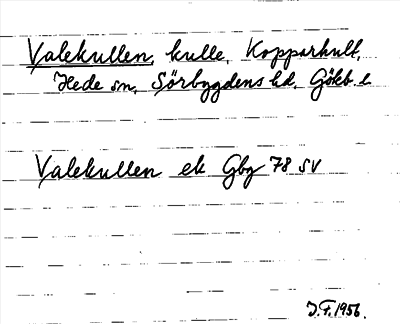 Valekullen, kulle, Kopparhult,
Hede sn, Sörbygdens hd, Gökb. l
Valekullen ek Gbg 78 SV
J.F. 1956.